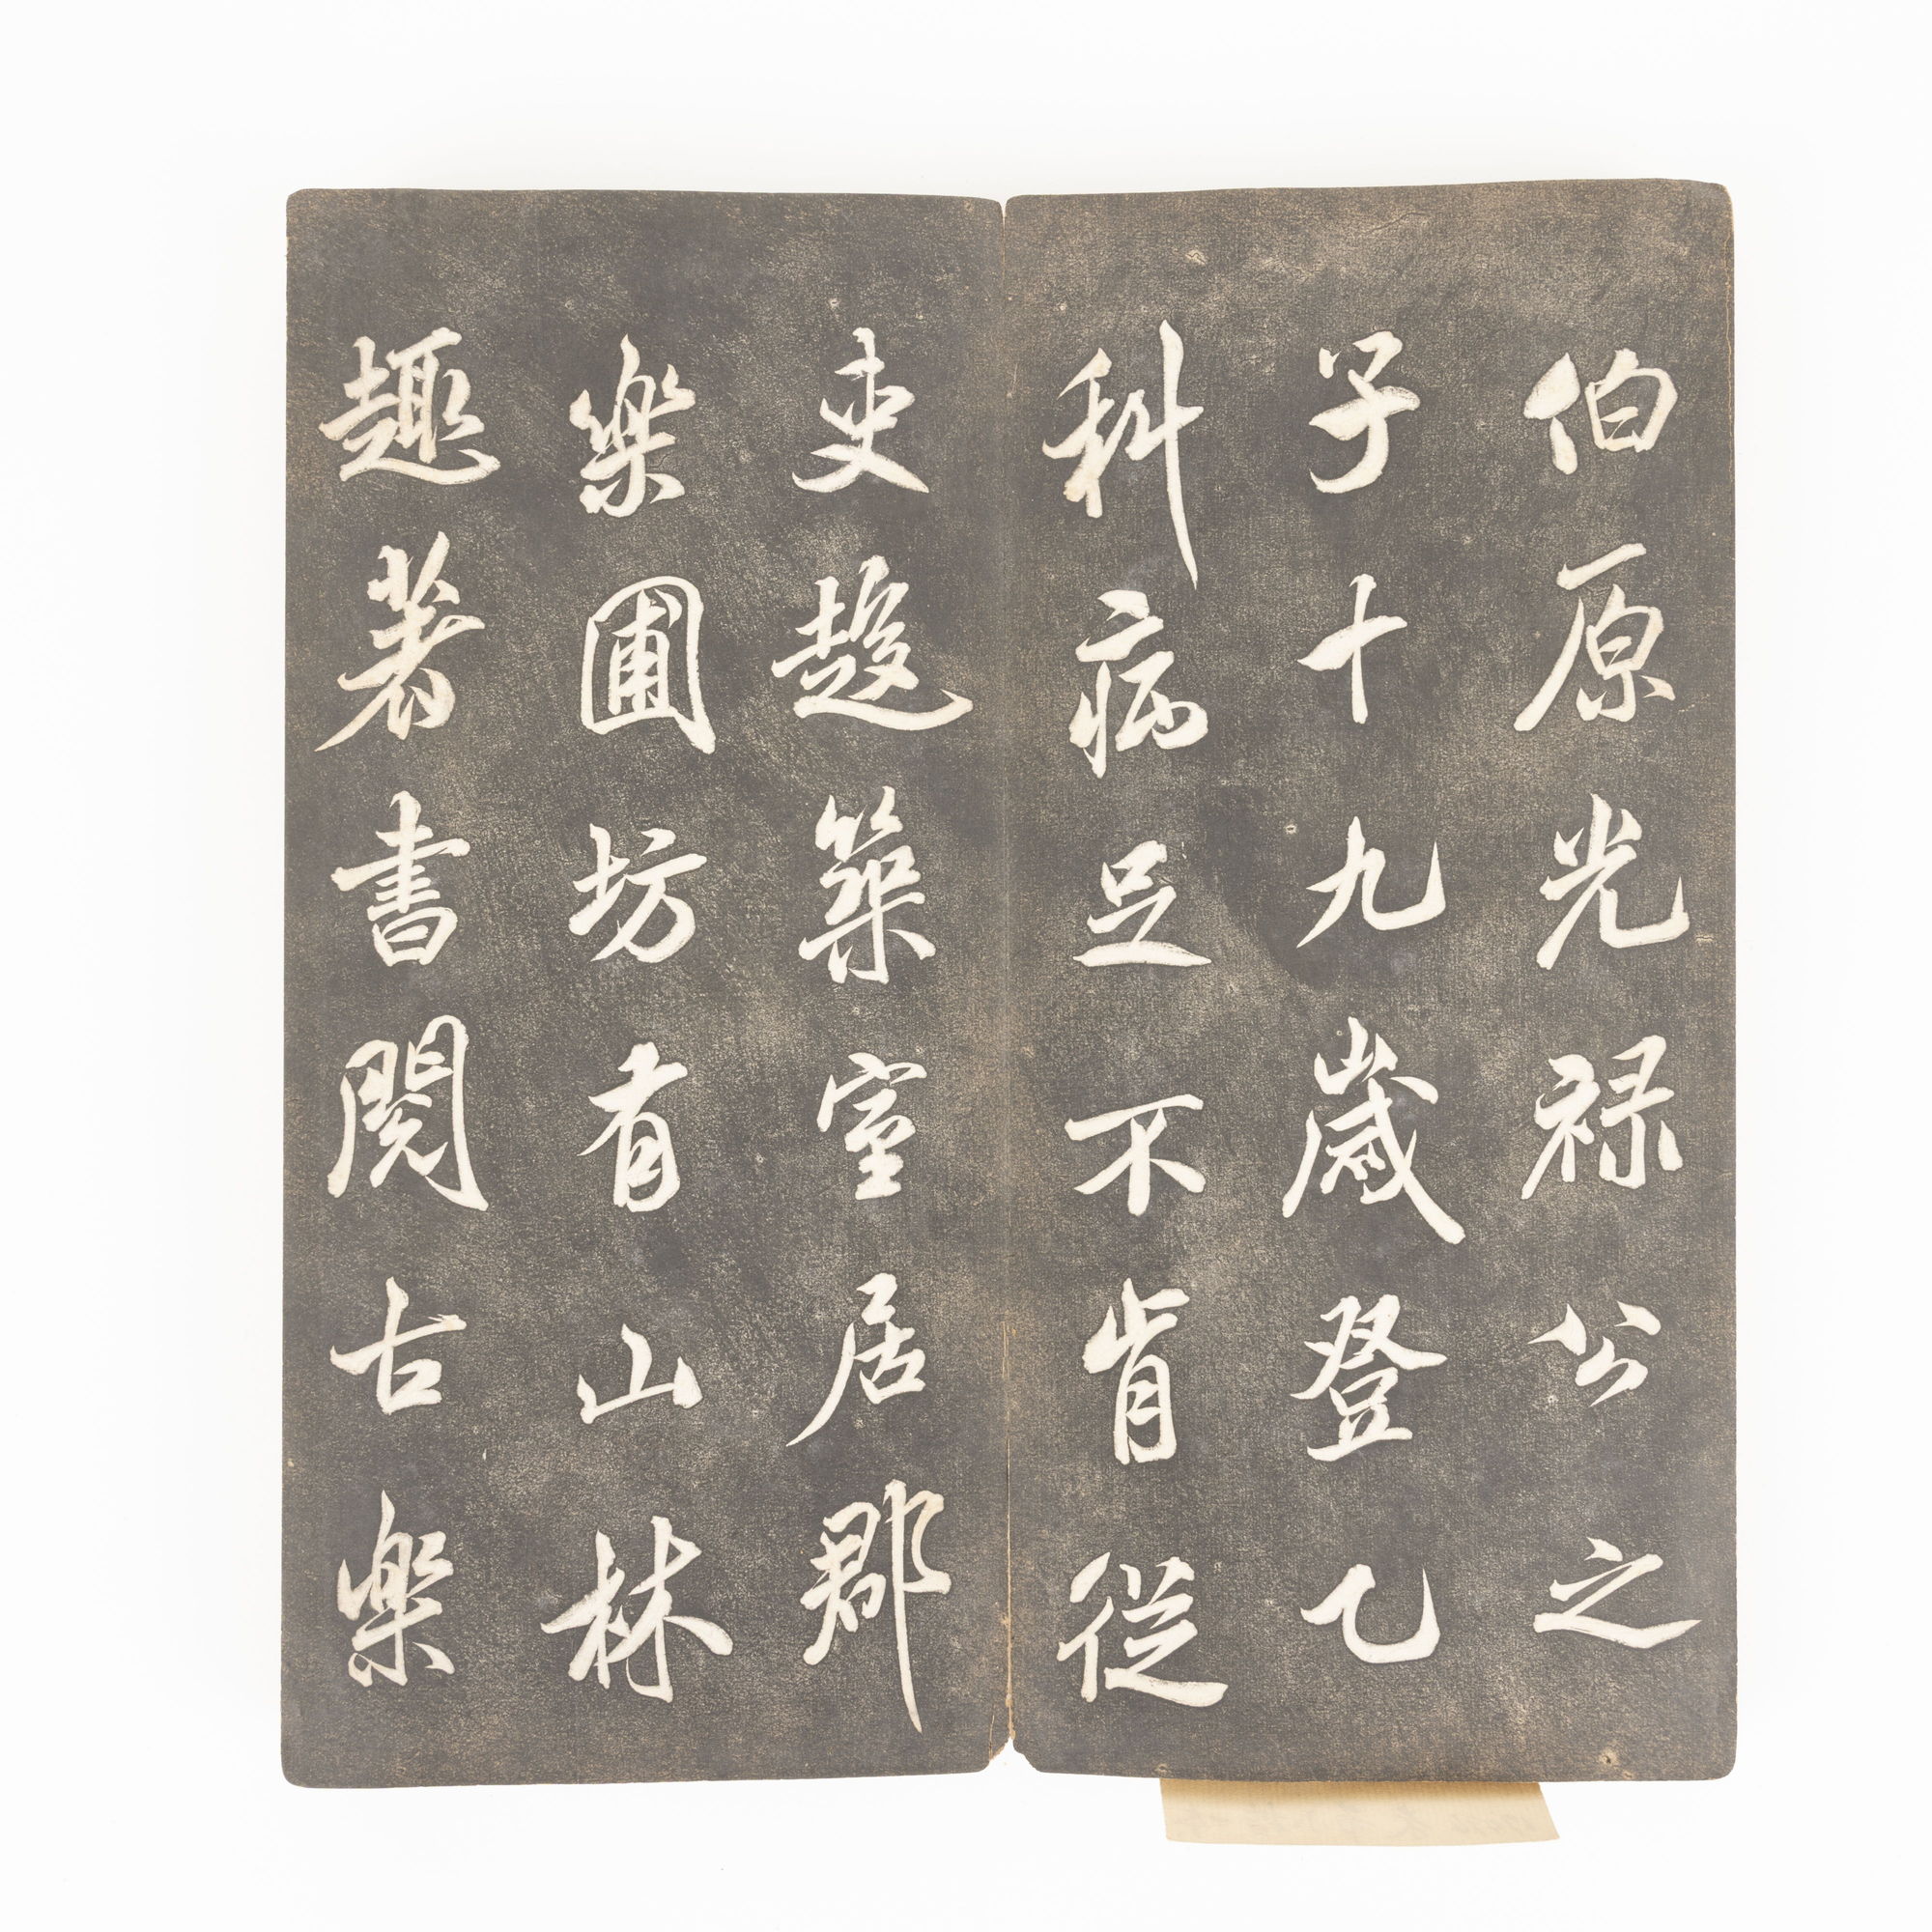 伯原光禄公之
子十九歳登乙
科病足不肯從
吏趍築室居郡
樂圃坊有山林
趣著書閱古樂